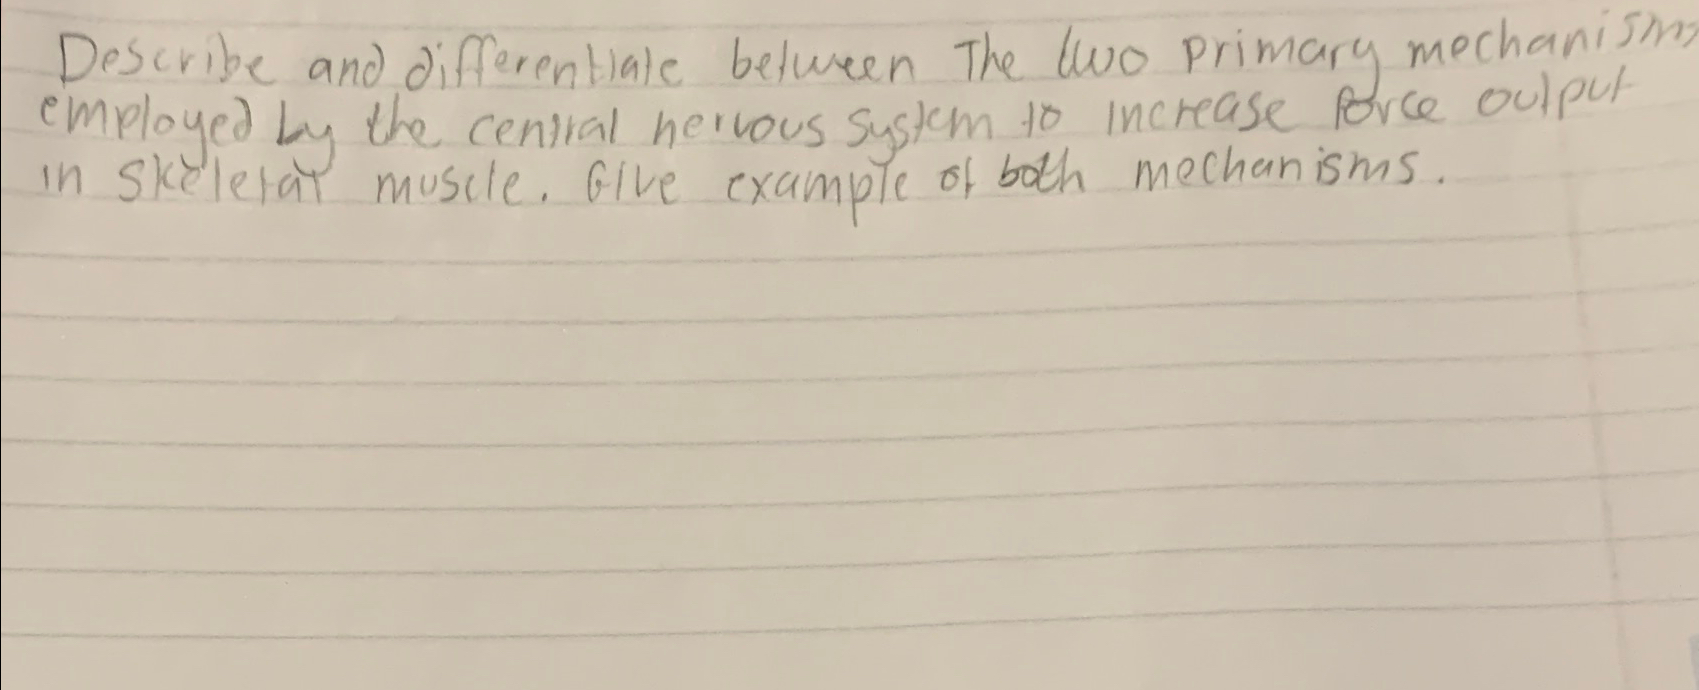 Describe and differentiate between The two primary mechanisms
employed by the central nervous system to increase force output
in skeletal muscle. Give example of both mechanisms.